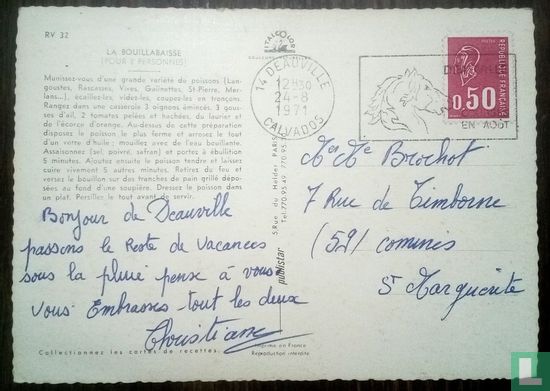 RV 32
LA BOUILLABAISSE
(POUR 8 PERSONNES)
Munissez-vous d'une grande variété de poissons (Lan-
goustes, Rascasses, Vives, Galinettes, St-Pierre, Mer-
lans...), écaillez-les, videz-les, coupez-les en tronçons.
Rangez dans une casserole 3 oignons émincés, 3 gous-
ses d'ail, 2 tomates pelées et hachées, du laurier et
de l'écorce d'orange. Au-dessus de cette préparation
disposez le poisson le plus ferme et arrosez le tout
d'un verre d'huile ; mouillez avec de l'eau bouillante.
Assaisonnez (sel, poivre, safran) et portez à ébullition
5 minutes. Ajoutez ensuite le poisson tendre et laissez
cuire vivement 5 autres minutes. Retirez du feu et
versez le bouillon sur des tranches de pain grillé dépo-
sées au fond d'une soupière. Dressez le poisson dans
un plat. Persiller le tout avant de servir.
Bonjour de Deauville
passons le Reste de Vacances
sous la pluie pense à vous
Vous Embrasses tout les deux
Christiane
Collectionnez les cartes de recettes.
ITALCOLOR
14 DEAUVILLE
12H30
24-8
1971
CALVADOS
EN AOÛT
POSTES
RÉPUBLIQUE FRANÇAISE
0,50
5, Rue du Helder, PARIS
Tel. 770.95.49
publistar
Imprimé en France
Reproduction interdite
Mr Me Brochot
7 Rue de Timborne
(59) comines
St Marguerite